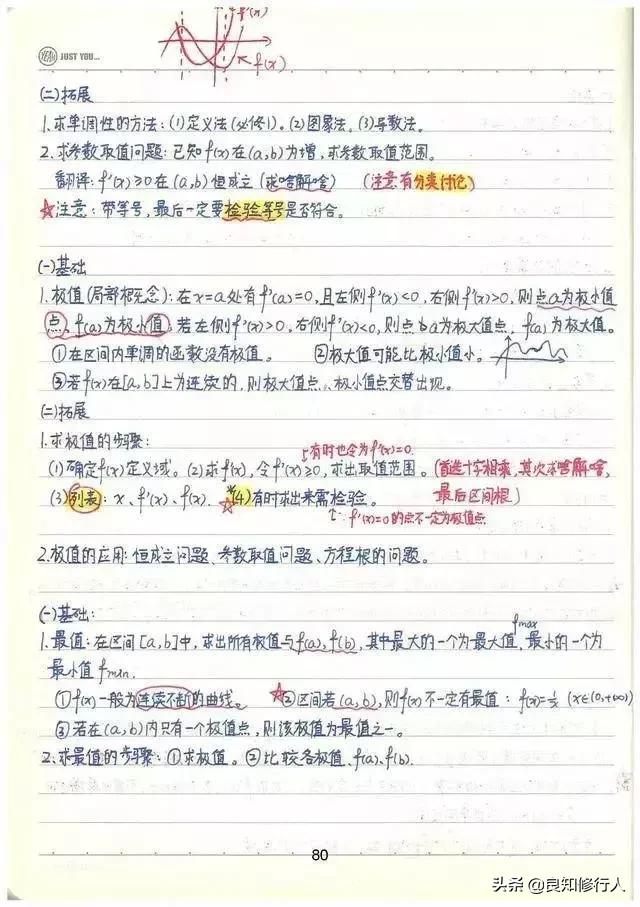 f'(x)
f(x)
YEAH JUST YOU...
(二)拓展
1.求单调性的方法:(1)定义法(必修1)。(2)图象法。(3)导数法。
2.求参数取值问题:已知f(x)在(a,b)为增,求参数取值范围。
翻译:f'(x)≥0在(a,b)恒成立(求啥解啥) (注意有分类讨论)
☆注意:带等号,最后一定要检验等号是否符合。
(一)基础
1.极值(局部概念):在x=a处有f'(a)=0,且左侧f'(x)<0,右侧f'(x)>0,则点a为极小值
点,f(a)为极小值;若左侧f'(x)>0,右侧f'(x)<0,则点a为极大值点,f(a)为极大值。
①在区间内单调的函数没有极值。 ②极大值可能比极小值小。
③若f(x)在[a,b]上为连续的,则极大值点、极小值点交替出现。
(二)拓展
1.求极值的步骤:
有时也令为f'(x)=0.
(1)确定f(x)定义域。(2)求f'(x),令f'(x)≥0,求出取值范围。(首选十字相乘,其次求啥解啥,
最后区间根)
(3)列表:x、f'(x)、f(x). ☆(4)有时求出来需检验。
∵f'(x)=0的点不一定为极值点
2.极值的应用:恒成立问题、参数取值问题、方程根的问题。
(一)基础:
1.最值:在区间[a,b]中,求出所有极值与f(a),f(b),其中最大的一个为最大值fmax,最小的一个为
最小值fmin.
①f(x)一般为连续不断的曲线。 ☆②区间若(a,b),则f(x)不一定有最值:f(x)=1/x (x∈(0,+∞))
③若在(a,b)内只有一个极值点,则该极值为最值之一。
2.求最值的步骤:①求极值。②比较各极值、f(a)、f(b).
80
头条 @良知修行人